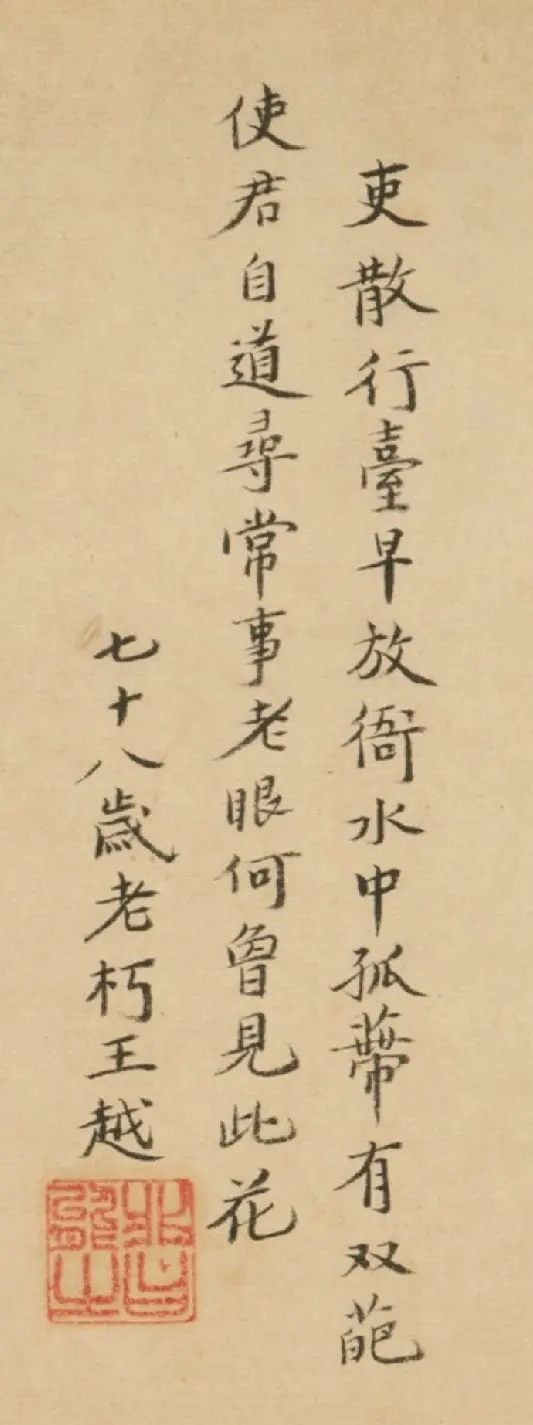 吏散行臺早放衙水中孤蔕有双葩
使君自道尋常事老眼何曾見此花
七十八歳老朽王越